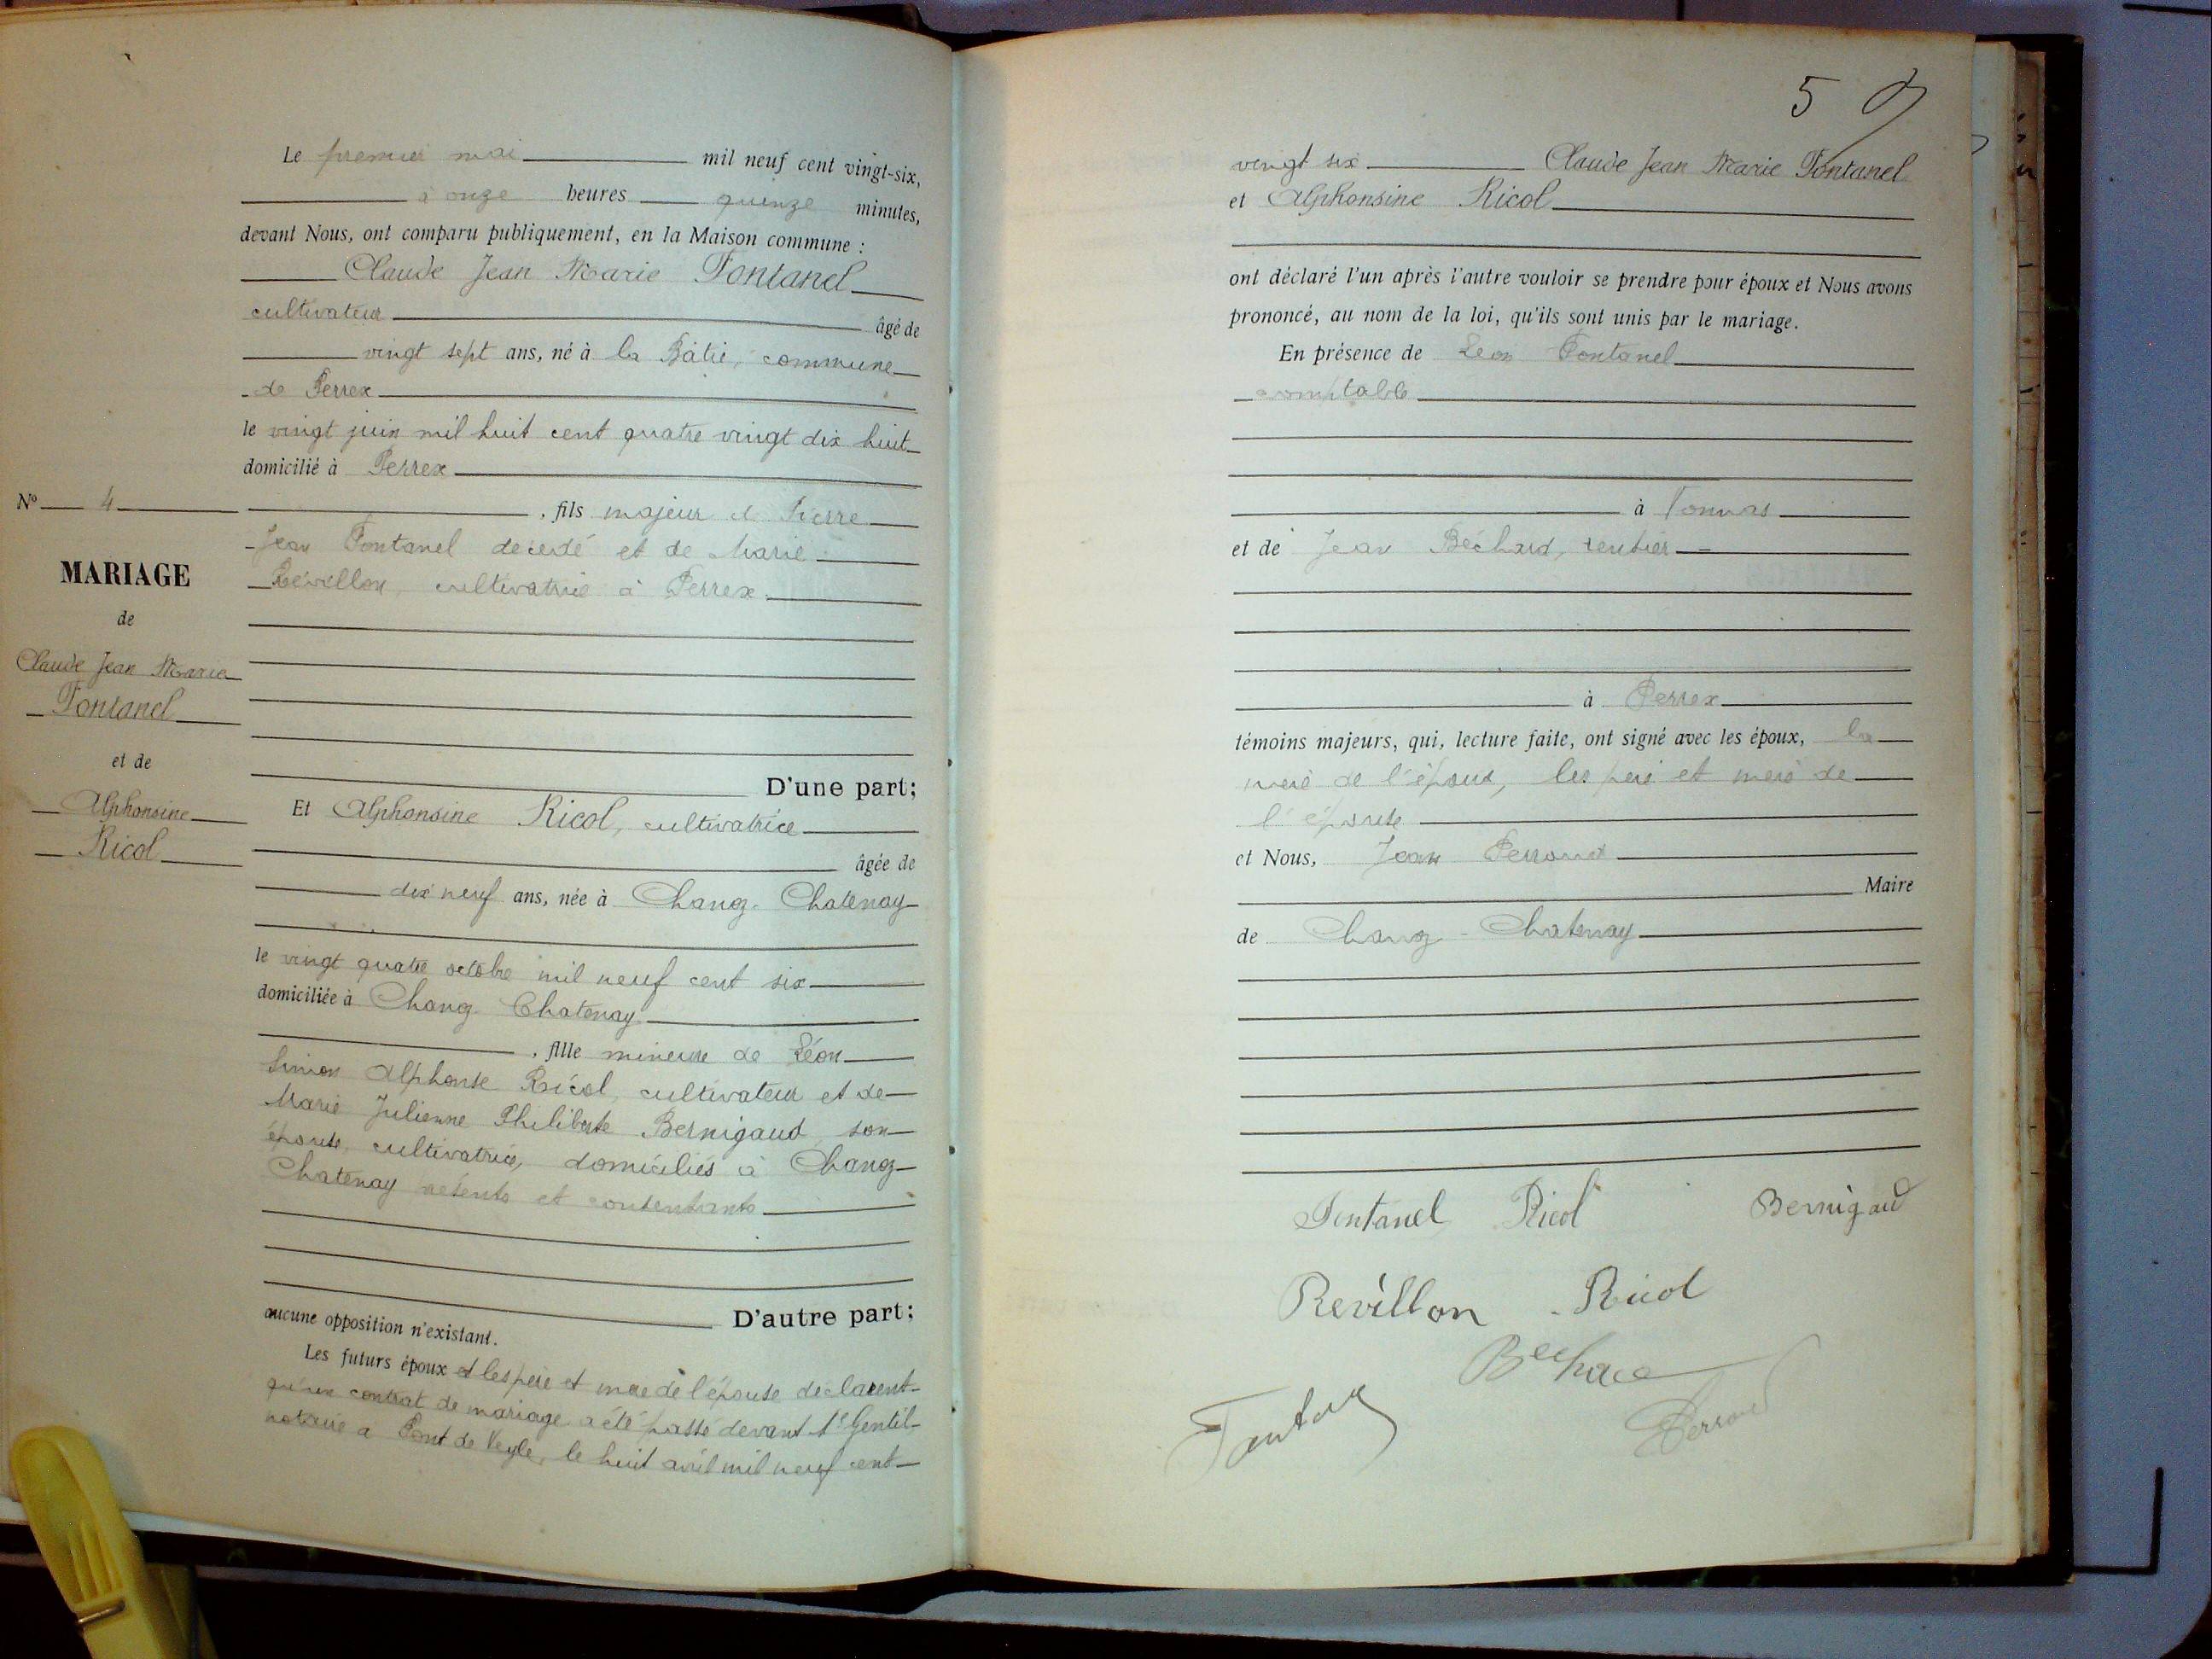 Le premier mai mil neuf cent vingt-six,
à onze heures quinze minutes,
devant Nous, ont comparu publiquement, en la Maison commune :
Claude Jean Marie Fontanel
cultivateur âgé de
vingt sept ans, né à la Bâtie, commune
de Perrex
le vingt juin mil huit cent quatre vingt dix huit
domicilié à Perrex
, fils majeur de Pierre
Jean Fontanel décedé et de Marie
Révillon, cultivatrice à Perrex.
D'une part;
Et Alphonsine Ricol, cultivatrice
âgée de
dix neuf ans, née à Chanoz-Chatenay
le vingt quatre octobre mil neuf cent six
domiciliée à Chanoz Chatenay
, fille mineure de Léon
Simon Alphonse Ricol, cultivateur et de
Marie Julienne Philiberte Bernigaud, son
épouse, cultivatrice, domiciliés à Chanoz
Chatenay présents et consentants
D'autre part;
aucune opposition n'existant.
Les futurs époux et les père et mère de l'épouse déclarent
qu'un contrat de mariage a été passé devant Me Gentil
notaire à Pont de Veyle, le huit avril mil neuf cent
No 4
MARIAGE
de
Claude Jean Marie
Fontanel
et de
Alphonsine
Ricol
5
vingt six Claude Jean Marie Fontanel
et Alphonsine Ricol
ont déclaré l'un après l'autre vouloir se prendre pour époux et Nous avons
prononcé, au nom de la loi, qu'ils sont unis par le mariage.
En présence de Léon Fontanel
comptable
à
et de Jean Béchard, rentier
à Perrex
témoins majeurs, qui, lecture faite, ont signé avec les époux, la
mère de l'époux, les père et mère de
l'épouse
et Nous, Jean Perroud
Maire
de Chanoz-Chatenay
Fontanel Ricol Bernigaud
Revillon Ricol